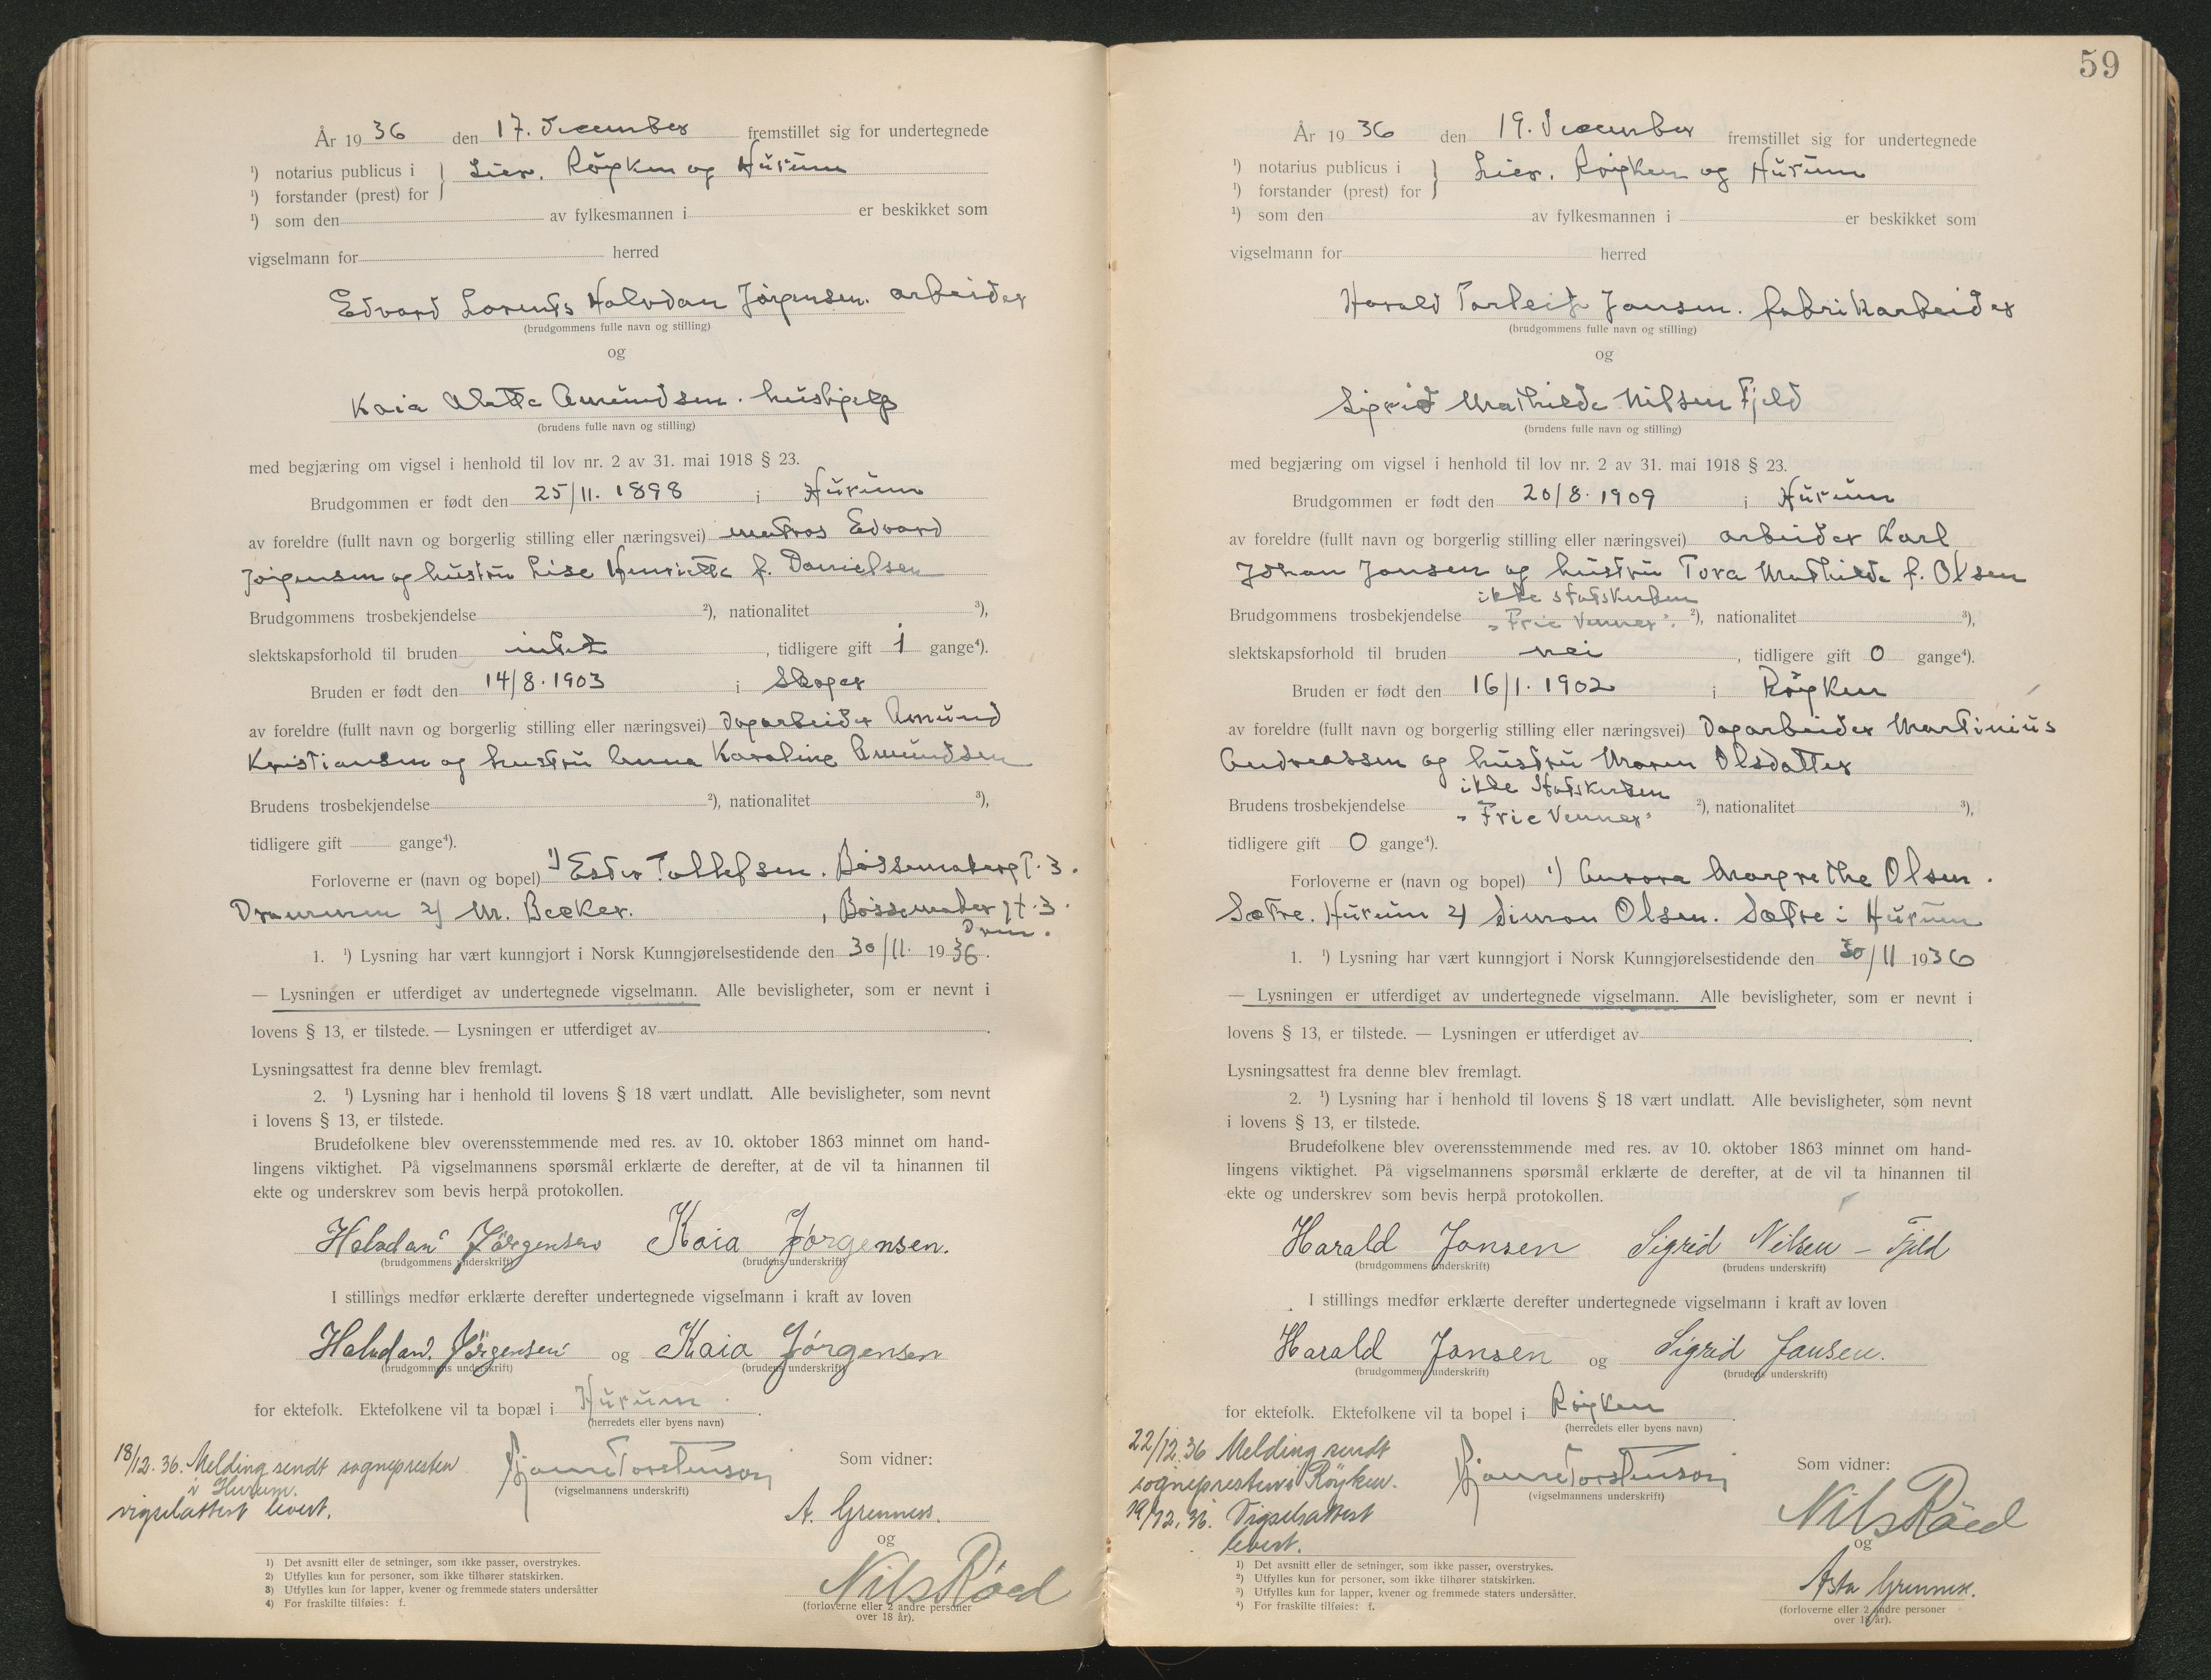 År 1936 den 17. December fremstillet sig for undertegnede
¹) notarius publicus i } Lier. Röyken og Hurum
¹) forstander (prest) for
¹) som den av fylkesmannen i er beskikket som
vigselmann for herred
Edvard Lorents Halvdan Jørgensen. arbeider
(brudgommens fulle navn og stilling)
og
Kaia Alette Amundsen. hushjelp
(brudens fulle navn og stilling)
med begjæring om vigsel i henhold til lov nr. 2 av 31. mai 1918 § 23.
Brudgommen er født den 25/11. 1898 i Hurum
av foreldre (fullt navn og borgerlig stilling eller næringsvei) matros Edvard
Jørgensen og hustru Lise Henriette f. Danielsen
Brudgommens trosbekjendelse ²), nationalitet ³),
slektskapsforhold til bruden intet, tidligere gift 1 gange⁴).
Bruden er født den 14/8. 1903 i Skoger
av foreldre (fullt navn og borgerlig stilling eller næringsvei) Dagarbeider Amund
Kristiansen og hustru Anna Karoline Amundsen
Brudens trosbekjendelse ²), nationalitet ³),
tidligere gift gange⁴).
Forloverne er (navn og bopel) 1) Ester Tollefsen. Bössemakergt. 3.
Drammen 2) M. Becker. , Bössemakergt. 3.
Drm.
1. ¹) Lysning har vært kunngjort i Norsk Kunngjørelsestidende den 30/11. 1936.
— Lysningen er utferdiget av undertegnede vigselmann. Alle bevisligheter, som er nevnt i
lovens § 13, er tilstede. — Lysningen er utferdiget av .
Lysningsattest fra denne blev fremlagt.
2. ¹) Lysning har i henhold til lovens § 18 vært undlatt. Alle bevisligheter, som nevnt
i lovens § 13, er tilstede.
Brudefolkene blev overensstemmende med res. av 10. oktober 1863 minnet om hand-
lingens viktighet. På vigselmannens spørsmål erklærte de derefter, at de vil ta hinannen til
ekte og underskrev som bevis herpå protokollen.
Halvdan Jørgensen Kaia Jørgensen.
(brudgommens underskrift) (brudens underskrift)
I stillings medfør erklærte derefter undertegnede vigselmann i kraft av loven
Halvdan Jørgensen og Kaia Jørgensen
(brudgommens underskrift) (brudens underskrift)
for ektefolk. Ektefolkene vil ta bopæl i Hurum.
(herredets eller byens navn)
18/12. 36. Melding sendt sognepresten
i Hurum.
vigselattest levert.
Bjarne Torstenson
(vigselmannens underskrift)
Som vidner:
A. Grenness.
og
Nils Röed
(forloverne eller 2 andre personer
over 18 år).
1) Det avsnitt eller de setninger, som ikke passer, overstrykes.
2) Utfylles kun for personer, som ikke tilhører statskirken.
3) Utfylles kun for lapper, kvener og fremmede staters undersåtter
4) For fraskilte tilføies: f.
59
År 1936 den 19. December fremstillet sig for undertegnede
¹) notarius publicus i } Lier. Röyken og Hurum
¹) forstander (prest) for
¹) som den av fylkesmannen i er beskikket som
vigselmann for herred
Harald Torleif Jansen. fabrikarbeider
(brudgommens fulle navn og stilling)
og
Sigrid Mathilde Nilsen Fjeld
(brudens fulle navn og stilling)
med begjæring om vigsel i henhold til lov nr. 2 av 31. mai 1918 § 23.
Brudgommen er født den 20/8. 1909 i Hurum
av foreldre (fullt navn og borgerlig stilling eller næringsvei) arbeider Karl
Johan Jansen og hustru Tora Mathilde f. Olsen
ikke statskirken
Brudgommens trosbekjendelse "Frie Venner". ²), nationalitet ³),
slektskapsforhold til bruden nei, tidligere gift 0 gange⁴).
Bruden er født den 16/1. 1902 i Röyken
av foreldre (fullt navn og borgerlig stilling eller næringsvei) Dagarbeider Martinius
Andreassen og hustru Maren Olsdatter
ikke Statskirken
Brudens trosbekjendelse "Frie Venner" ²), nationalitet ³),
tidligere gift 0 gange⁴).
Forloverne er (navn og bopel) 1) Aurora Margrethe Olsen.
Sætre. Hurum 2) Simon Olsen. Sætre i Hurum
1. ¹) Lysning har vært kunngjort i Norsk Kunngjørelsestidende den 30/11 1936
— Lysningen er utferdiget av undertegnede vigselmann. Alle bevisligheter, som er nevnt i
lovens § 13, er tilstede. — Lysningen er utferdiget av .
Lysningsattest fra denne blev fremlagt.
2. ¹) Lysning har i henhold til lovens § 18 vært undlatt. Alle bevisligheter, som nevnt
i lovens § 13, er tilstede.
Brudefolkene blev overensstemmende med res. av 10. oktober 1863 minnet om hand-
lingens viktighet. På vigselmannens spørsmål erklærte de derefter, at de vil ta hinannen til
ekte og underskrev som bevis herpå protokollen.
Harald Jansen Sigrid Nilsen – Fjeld
(brudgommens underskrift) (brudens underskrift)
I stillings medfør erklærte derefter undertegnede vigselmann i kraft av loven
Harald Jansen og Sigrid Jansen.
(brudgommens underskrift) (brudens underskrift)
for ektefolk. Ektefolkene vil ta bopel i Röyken.
(herredets eller byens navn)
22/12. 36 Melding sendt
sognepresten i Röyken.
19/12. 36. Vigselsattest
levert.
Bjarne Torstenson
(vigselmannens underskrift)
Som vidner:
Nils Röed
og
Asta Grenness.
(forloverne eller 2 andre personer
over 18 år).
¹) Det avsnitt eller de setninger, som ikke passer, overstrykes.
²) Utfylles kun for personer, som ikke tilhører statskirken.
³) Utfylles kun for lapper, kvener og fremmede staters undersåtter.
⁴) For fraskilte tilføies: f.